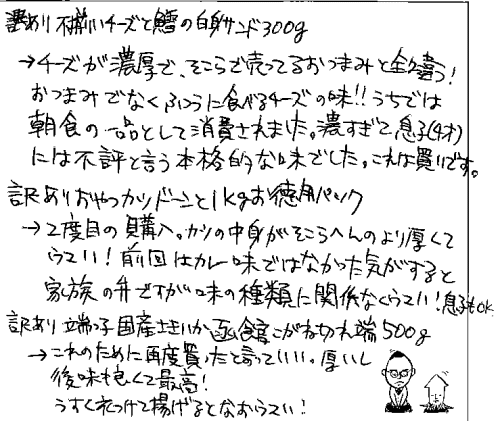 訳あり不揃いチーズと鱈の白身サンド300g
→チーズが濃厚で、そこらで売ってるおつまみと全然違う!
おつまみでなくふつうに食べるチーズの味!!うちでは
朝食の一品として消費されました。濃すぎて息子(4才)
には不評と言う本格的な味でした。これは買いです。
訳ありおやつカツドーンと1kgお徳用パック
→2度目の購入。カツの中身がそこらへんのより厚くて
うまい!前回はカレー味ではなかった気がすると
家族の弁ですが味の種類に関係なくうまい!息子もOK
訳あり端っ子国産さきいか函館こがね切れ端500g
→これのために再度買ったと言っていい。厚いし
後味も良くて最高!
うすく衣つけて揚げるとなおうまい!